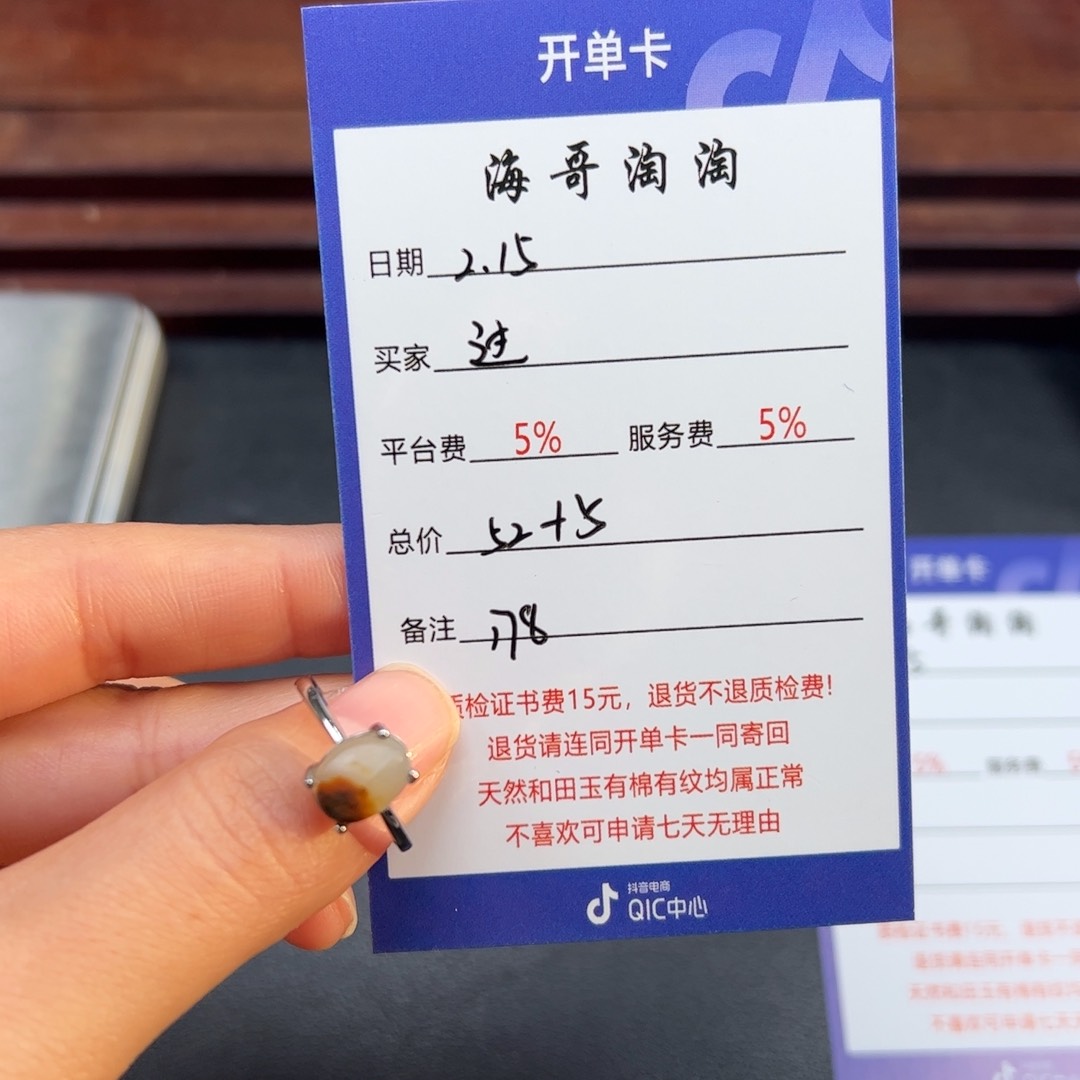 开单卡
海哥淘淘
日期 2.15
买家
平台费 5% 服务费 5%
总价 52+5
备注 178
质检证书费15元，退货不退质检费！
退货请连同开单卡一同寄回
天然和田玉有棉有纹均属正常
不喜欢可申请七天无理由
抖音电商
QIC中心
开单卡